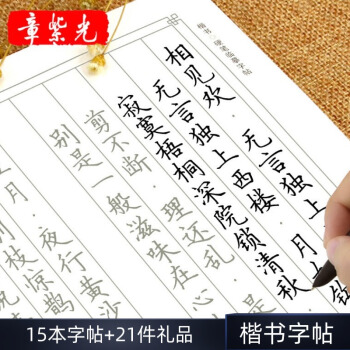 章紫光
楷书·硬笔临摹字帖
相见欢
无言独上
无言独上西楼 月
寂寞梧桐深院锁清秋
剪不断 理还乱 是
别是一般滋味在心
夜行黄沙
月
枝惊鹊
15本字帖+21件礼品
楷书字帖